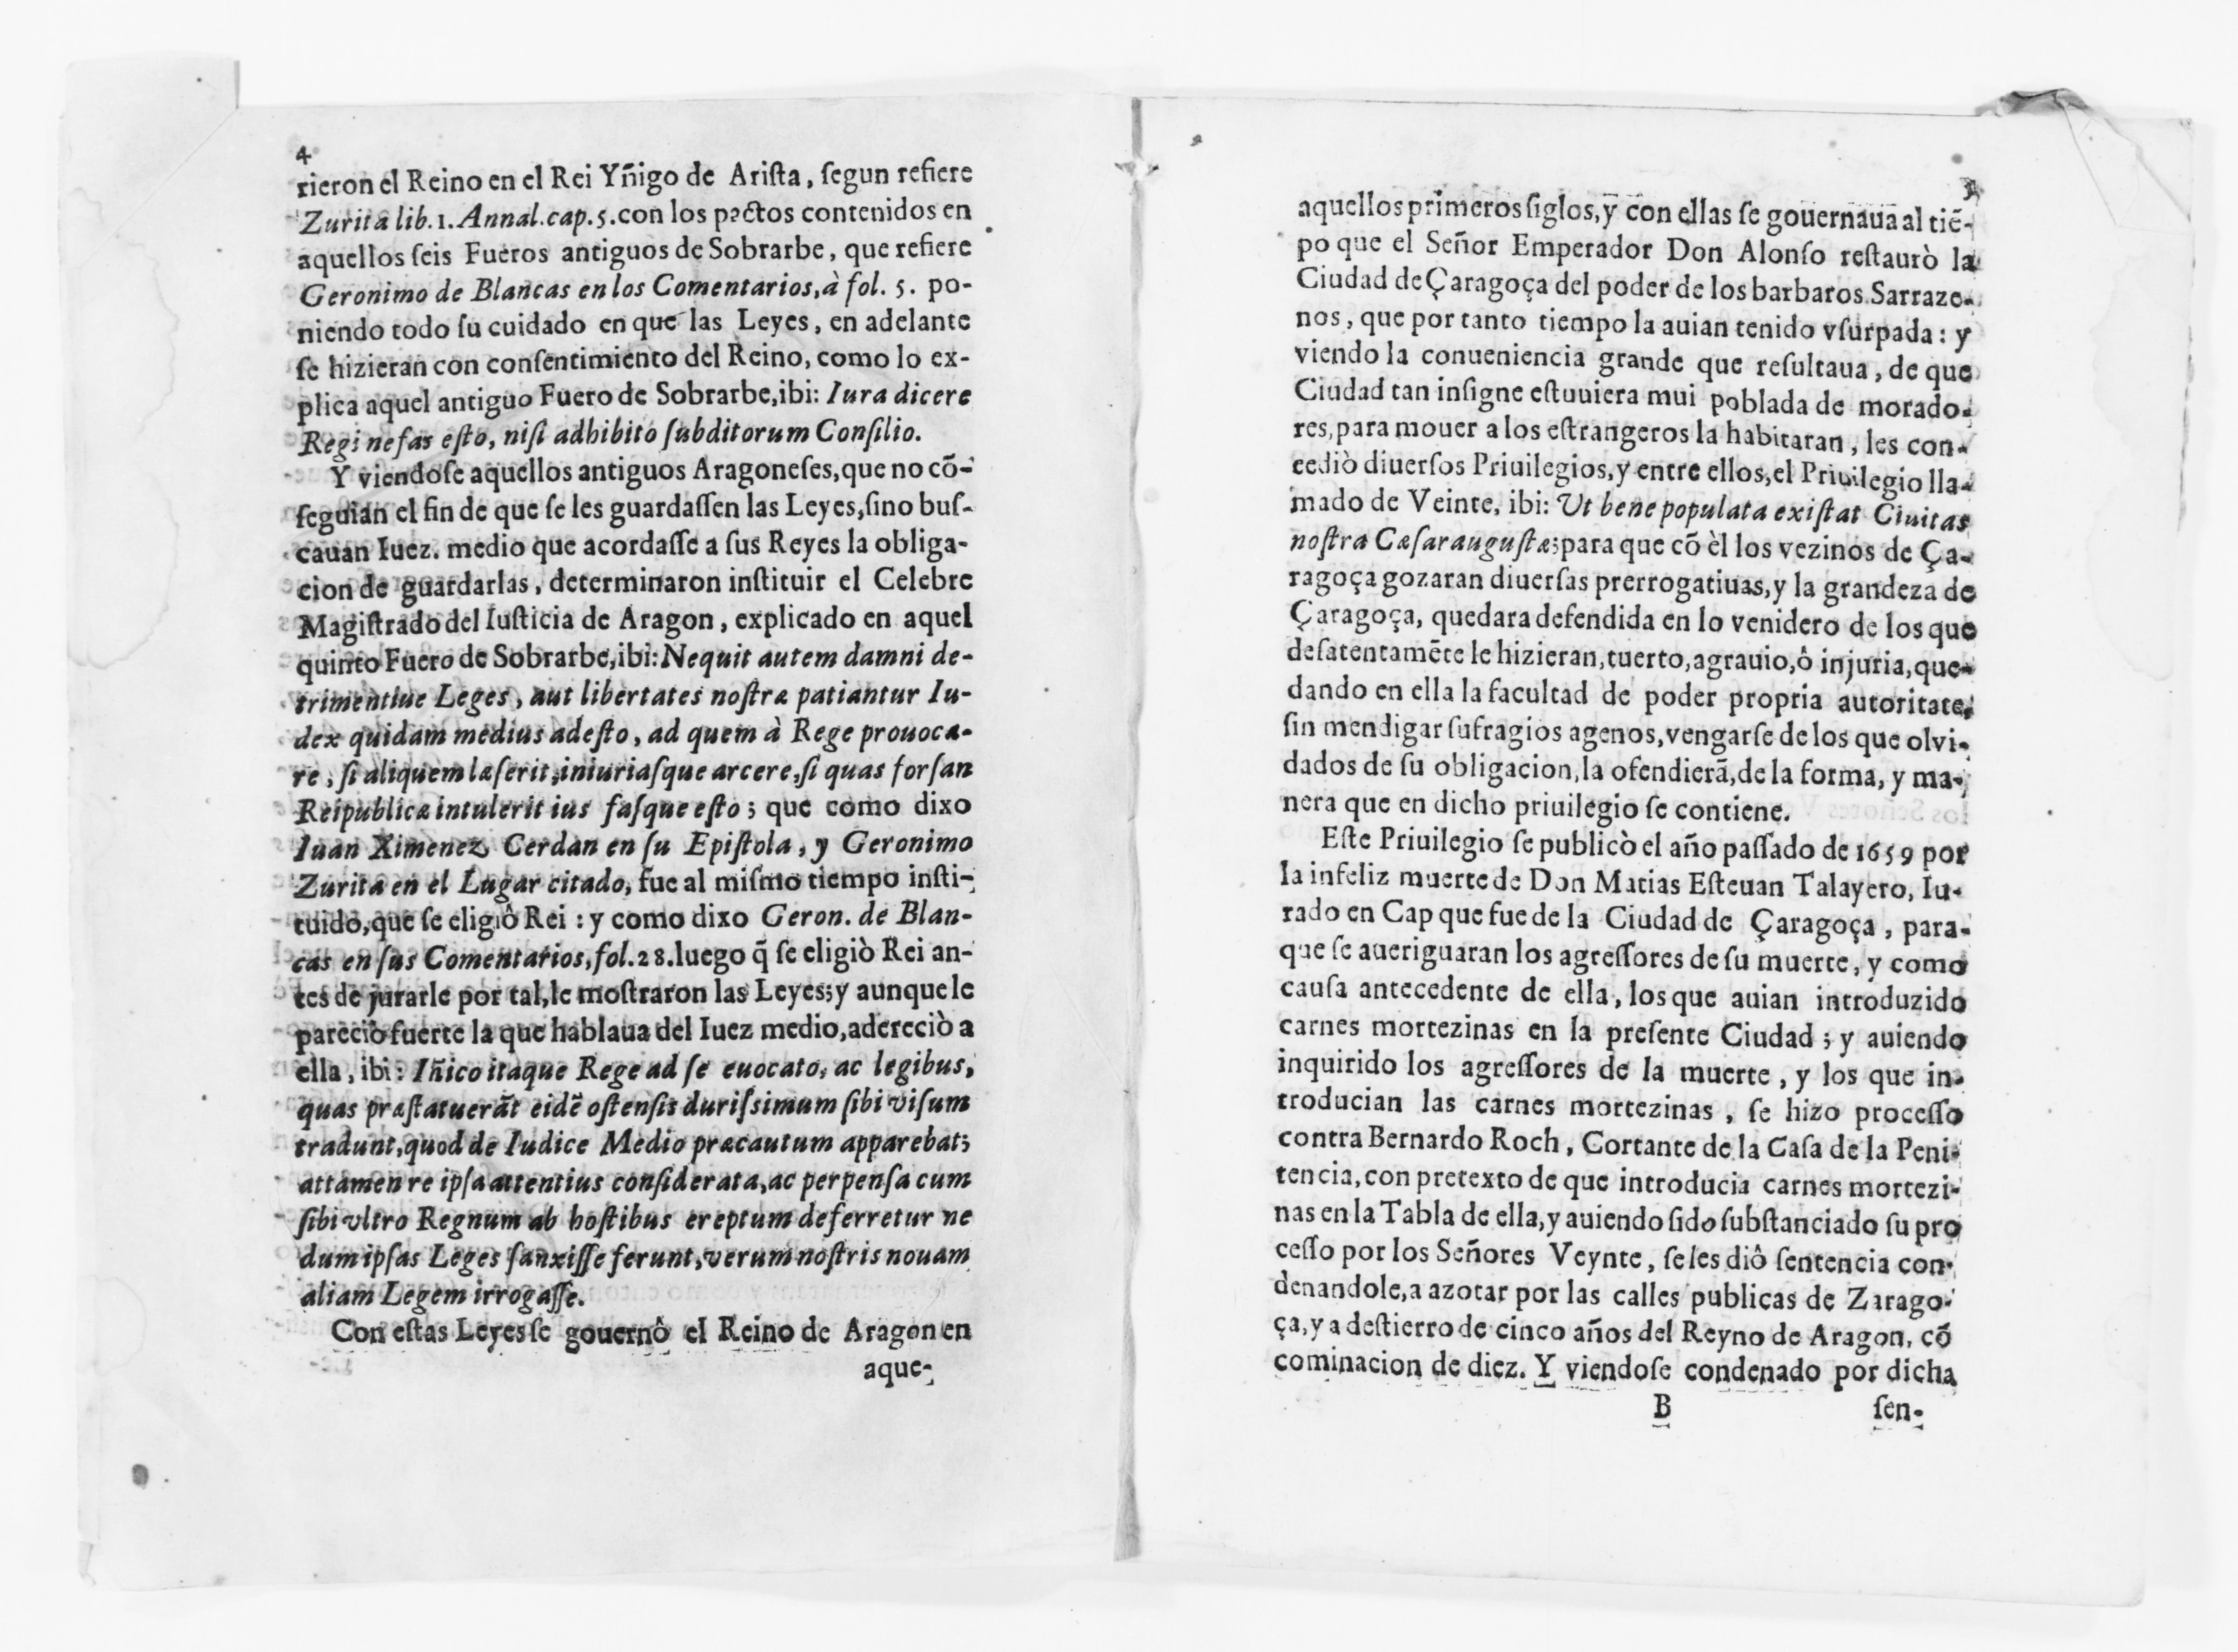 4
rieron el Reino en el Rei Yñigo de Arista, ſegun refiere
Zurita lib. 1. Annal. cap. 5. con los pactos contenidos en
aquellos ſeis Fueros antiguos de Sobrarbe, que refiere
Geronimo de Blancas en los Comentarios, à fol. 5. po-
niendo todo ſu cuidado en que las Leyes, en adelante
ſe hizieran con conſentimiento del Reino, como lo ex-
plica aquel antiguo Fuero de Sobrarbe, ibi: Iura dicere
Regi nefas eſto, niſi adhibito ſubditorum Conſilio.
Y viendoſe aquellos antiguos Aragoneſes, que no cō-
ſeguian el fin de que ſe les guardaſſen las Leyes, ſino buſ-
cauan Iuez. medio que acordaſſe a ſus Reyes la obliga-
cion de guardarlas, determinaron inſtituir el Celebre
Magiſtrado del Iuſticia de Aragon, explicado en aquel
quinto Fuero de Sobrarbe, ibi: Nequit autem damni de-
trimentiue Leges, aut libertates noſtræ patiantur Iu-
dex quidam medius adeſto, ad quem à Rege prouoca-
re, ſi aliquem læſerit, iniuriaſque arcere, ſi quas forſan
Reipublicæ intulerit ius faſque eſto; que como dixo
Iuan Ximenez Cerdan en ſu Epiſtola, y Geronimo
Zurita en el Lugar citado, fue al miſmo tiempo inſti-
tuido, que ſe eligiô Rei: y como dixo Geron. de Blan-
cas en ſus Comentarios, fol. 28. luego q̃ ſe eligiò Rei an-
tes de jurarle por tal, le moſtraron las Leyes; y aunque le
pareciò fuerte la que hablaua del Iuez medio, adereciò a
ella, ibi: Iñico itaque Rege ad ſe euocato, ac legibus,
quas præſtatuerāt eidē oſtenſis duriſsimum ſibi viſum
tradunt, quod de Iudice Medio præcautum apparebat;
attamen re ipſa attentius conſiderata, ac perpenſa cum
ſibi vltro Regnum ab hoſtibus ereptum deferretur ne
dum ipſas Leges ſanxiſſe ferunt, verum noſtris nouam
aliam Legem irrogaſſe.
Con eſtas Leyes ſe gouernô el Reino de Aragon en
aque-
aquellos primeros ſiglos, y con ellas ſe gouernaua al tiē-
po que el Señor Emperador Don Alonſo reſtaurò la
Ciudad de Çaragoça del poder de los barbaros Sarraze-
nos, que por tanto tiempo la auian tenido vſurpada: y
viendo la conueniencia grande que reſultaua, de que
Ciudad tan inſigne eſtuuiera mui poblada de morado-
res, para mouer a los eſtrangeros la habitaran, les con-
cediò diuerſos Priuilegios, y entre ellos, el Priuilegio lla-
mado de Veinte, ibi: Vt bene populata exiſtat Ciuitas
noſtra Cæſarauguſtæ; para que cō èl los vezinos de Ça-
ragoça gozaran diuerſas prerrogatiuas, y la grandeza de
Çaragoça, quedara defendida en lo venidero de los que
deſatentamēte le hizieran, tuerto, agrauio, ô injuria, que-
dando en ella la facultad de poder propria autoritate,
ſin mendigar ſufragios agenos, vengarſe de los que olvi-
dados de ſu obligacion, la ofendierā, de la forma, y ma-
nera que en dicho priuilegio ſe contiene.
Eſte Priuilegio ſe publicò el año paſſado de 1659 por
la infeliz muerte de Don Matias Eſteuan Talayero, Iu-
rado en Cap que fue de la Ciudad de Çaragoça, para-
que ſe aueriguaran los agreſſores de ſu muerte, y como
cauſa antecedente de ella, los que auian introduzido
carnes mortezinas en la preſente Ciudad; y auiendo
inquirido los agreſſores de la muerte, y los que in-
troducian las carnes mortezinas, ſe hizo proceſſo
contra Bernardo Roch, Cortante de la Caſa de la Peni-
tencia, con pretexto de que introducia carnes mortezi-
nas en la Tabla de ella, y auiendo ſido ſubſtanciado ſu pro
ceſſo por los Señores Veynte, ſe les diô ſentencia con-
denandole, a azotar por las calles publicas de Zarago-
ça, y a deſtierro de cinco años del Reyno de Aragon, cō
cominacion de diez. Y viendoſe condenado por dicha
B
ſen-